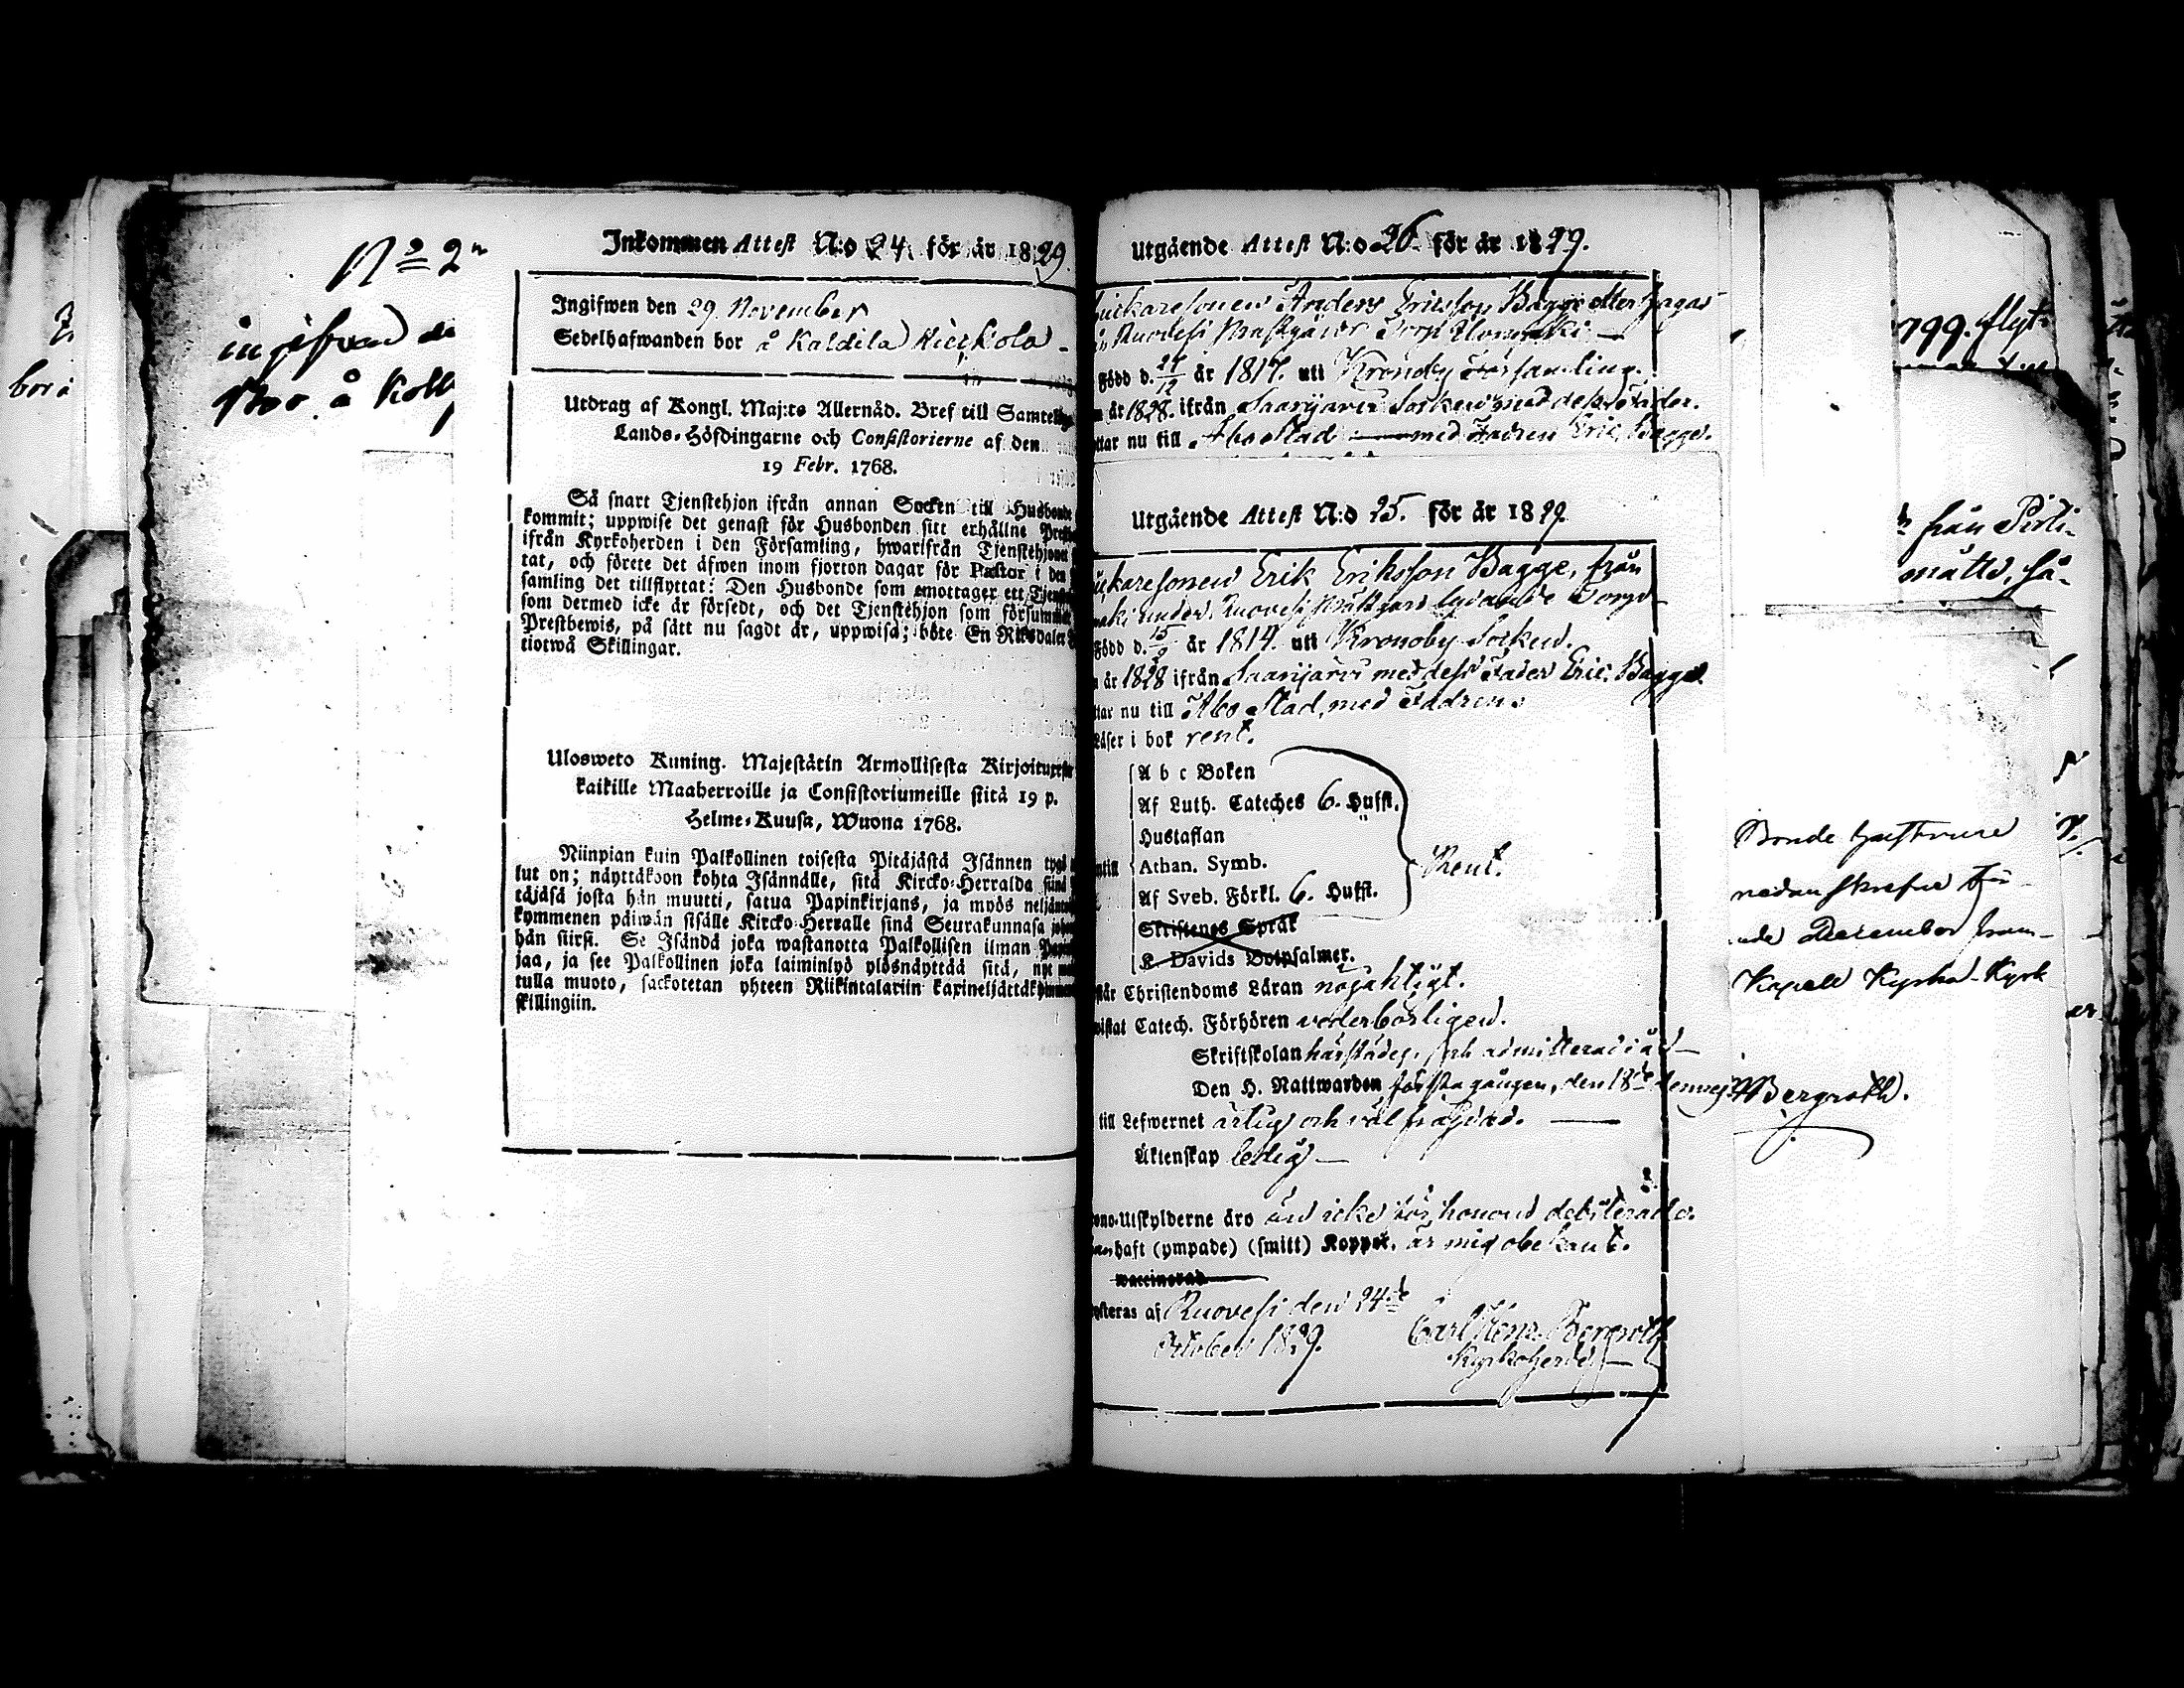 N:o 2
ingifven de
Bor å Koll
bor å
Inkommen Attest N:o 24 för år 1829.
Ingifwen den 29. November
Sedelhafwanden bor å Kaldila Kierkola
Utdrag af Kongl. Maj:ts Allernåd. Bref till Samtelige
Lands-Höfdingarne och Consistorierne af den
19 Febr. 1768.
Så snart Tjenstehjon ifrån annan Socken till Husbonde
kommit; uppwise det genast för Husbonden sitt erhållne
ifrån Kyrkoherden i den Församling, hwarifrån Tjenstehjonet
tat, och förete det äfwen inom fjorton dagar för Pastor i den
samling det tillflyttat: Den Husbonde som emottager ett
som dermed icke är försedt, och det Tjenstehjon som
Prestbewis, på sätt nu sagdt är, uppwisa; böte En Riksdaler
tiotwå Skillingar.
Ulosweto Kuning. Majestätin Armollisesta
kaikille Maaherroille ja Consistoriumeille siitä 19 p.
Helme-Kuusa, Wuona 1768.
Niinpian kuin Palkollinen toisesta Pitäjästä Isännen tygö
lut on; näyttäköön kohta Isännälle, sitä Kircko-Herralda siinä
täjäsä josta hän muutti, saatua Papinkirjans, ja myös
kymmenen päiwän sisälle Kircko-Herralle siinä Seurakunnasa
hän siirsi. Se Isändä joka wastanotta Palkollisen ilman
jaa, ja see Palkollinen joka laiminlyö ylösnäyttää sitä, nyt
tulla muoto, sackotetan yhteen Riikintalariin
skillingiin.
Utgående Attest N:o 26 för år 1829.
Anders Ericsson Bagge
Ruovesi Prästgårds Torp
Född d. 27/12 år 1817. uti Kronoby Församling.
år 1828. ifrån Saarijärvi Socken med dess Fader.
ttar nu till Åbo Stad med Fadren Eric Bagge.
Utgående Attest N:o 25. för år 1829
Erik Eriksson Bagge, från
under Ruovesi Prästgård lydande Torp
Född d. 15/9 år 1814. uti Kronoby Socken.
år 1828 ifrån Saarijärvi med dess Fader Eric Bagge.
ttar nu till Åbo Stad, med Fadren.
Läser i bok rent.
A b c Boken
Af Luth. Cateches 6. Hufst.
Hustaflan
Athan. Symb.
Af Sveb. Förkl. 6. Hufst.
Skriftenes Språk
K. Davids Botpsalmer.
Rent.
står Christendoms Läran nöjaktigt.
wistat Catech. Förhören vederbörligen.
Skriftskolan härstädes, och admitterad i år
Den H. Nattwarden första gången, den 18
till Lefwernet ärlig och väl frägdad.
Äktenskap ledig
ono-Utskylderne äro än icke för honom debiterade.
haft (ympade) (smitt) Koppor. är mig obekant.
waccinerad
Ruovesi den 24de
October 1829.
Carl Henr. Bergroth
Kyrkoherde
1799. flyt
från Pirti-
måtte, så-
Bonde
nedanskrefne
December fram-
Kapell Kyrka Kyrk
Bergroth.